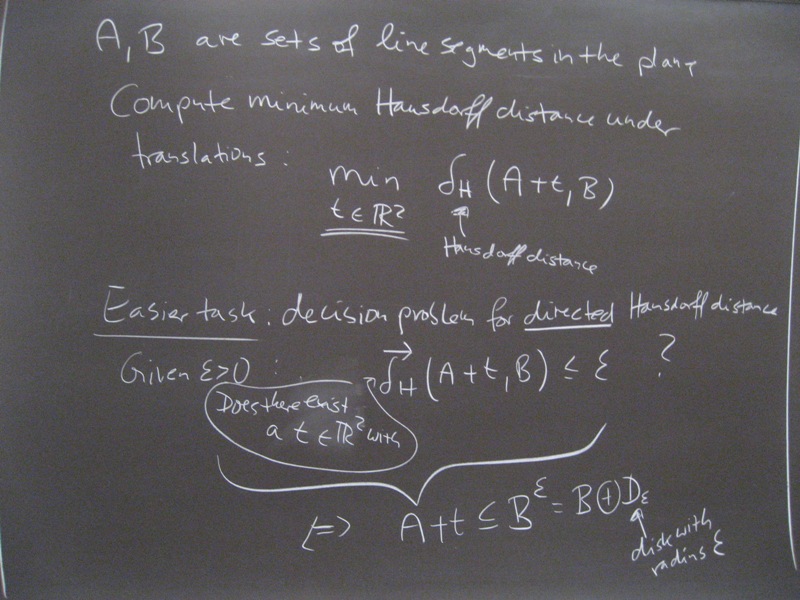 A, B are sets of line segments in the plane
Compute minimum Hausdorff distance under
translations:
min δ_H (A+t, B)
t ∈ ℝ²
Hausdorff distance
Easier task: decision problem for directed Hausdorff distance
Given ε>0 : δ⃗_H (A+t, B) ≤ ε ?
Does there exist
a t ∈ ℝ² with
⇔ A+t ⊆ B^ε = B ⊕ D_ε
disk with
radius ε